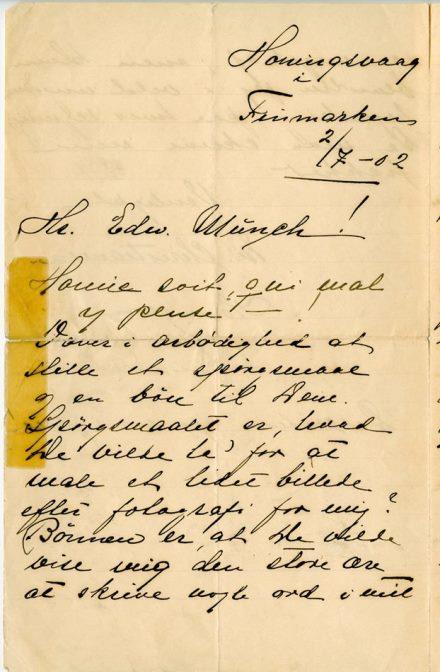 Honingsvaag
i
Finmarken
2/7 -02
Hr. Edv. Münch!
Honnie soit, qui mal
y pense! —
Vover i ærbødighed at
stille et spørgsmaal
og en bön til Dem.
Spørgsmaalet er, hvad
De vilde ta' for at
male et lidet billede
efter fotografi for mig?
Bönnen er, at De vilde
vise mig den store ære
at skrive nogle ord i mit